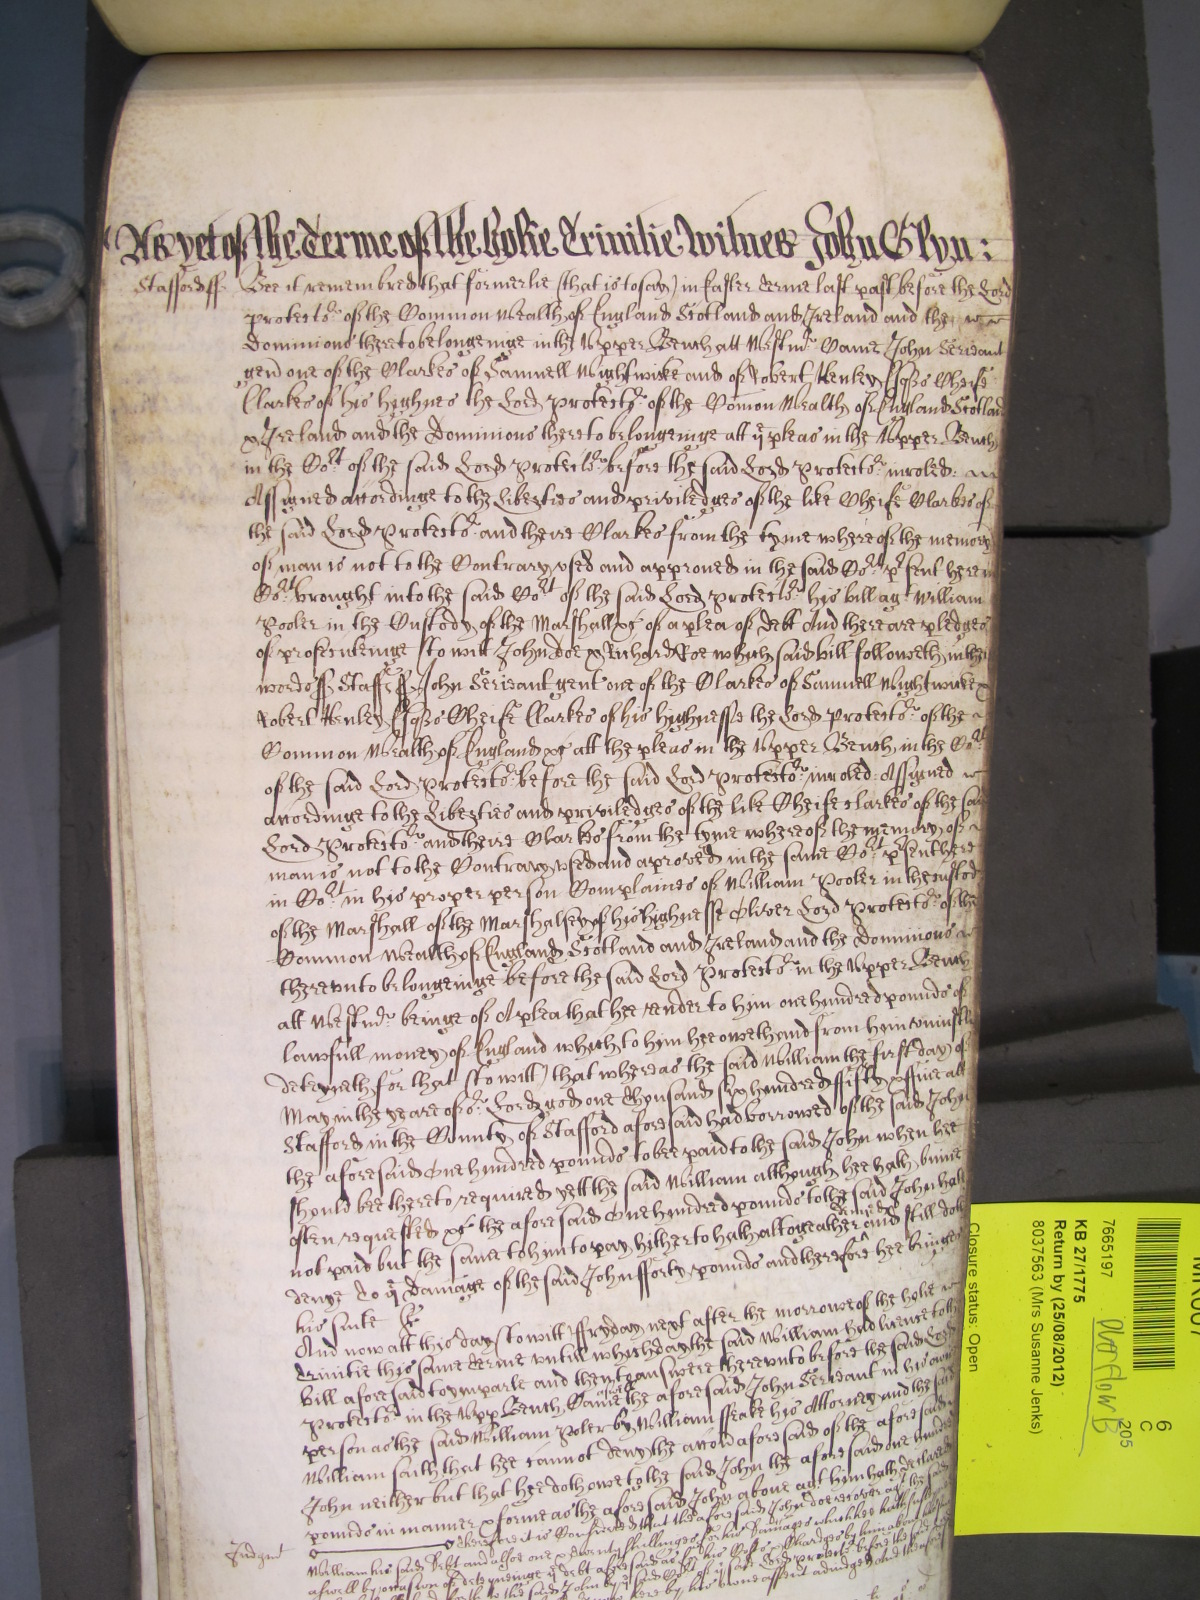 As yet of the Terme of the holie Trinitie Witnes John Glyn:
Stafford ss Bee it remembred that formerlie (that is to say) in Easter Terme last past before the Lord
Protector of the Common Wealth of England Scotland and Ireland and the
Dominions thereto belongeinge in the Upper Bench att Westmr Came John Serieant
gent one of the Clarkes of Samuell Wightwicke and of Robert Henley Esqrs Cheife
Clarkes of his highnes the Lord Protector of the Comon Wealth of England Scotland
& Ireland and the Dominions thereto belongeinge att ye pleas in the Upper Bench
in the Cort of the said Lord Protector before the said Lord Protector inroled
Assigned accordinge to the Liberties and priviledges of the like Cheife Clarkes of
the said Lord Protector and theire Clarkes from the tyme whereof the memory
of man is not to the Contrary used and approued in the said Cort psent here in
Cort brought into the said Cort of the said Lord Protector his bill agt William
Pooler in the Custody of the Marshall &c of a plea of debt And there are pledges
of prosecuteinge (to witt) John Doe & Richard Roe which said bill followeth in these
words ss Staff ss John Serieant gent one of the Clarkes of Samuell Wightwicke &
Robert Henley Esqrs Cheife Clarkes of his highnesse the Lord Protector of the
Common Wealth of England &c att the pleas in the Upper Bench in the Cort
of the said Lord Protector before the said Lord Protector inroled Assigned
accordinge to the Liberties and priviledges of the like Cheife clarkes of the said
Lord Protector and theire Clarkes from the tyme whereof the memory of
man is not to the Contrary used and aproved in the same Cort psent here
in Cort in his proper person Complaines of William Pooler in the custody
of the Marshall of the Marshalsey of his highnesse Oliver Lord Protector of the
Common Wealth of England Scotland and Ireland and the Dominions
thereunto belongeinge before the said Lord Protector in the Upper Bench
att Westmr beinge of A plea that hee render to him one hundred pounds of
lawfull money of England which to him hee oweth and from him uniustlie
deteyneth for that (to witt) that whereas the said William the first day of
May in the yeare of or Lord god one thousand six hundred fifty & fiue att
Stafford in the County of Stafford aforesaid had borrowed of the said John
the aforesaid One hundred pounds to bee paid to the said John when hee
should bee thereto required yett the said William although hee hath binne
often requested &c the aforesaid One hundred pounds to the said John hath
not paid but the same to him to pay hitherto hath altogeather denied and still doth
denye To ye Damage of the said John fforty pounds and therefore hee bringes
his suite &c
And now att this day (to witt) ffryday next after the morrowe of the holie
Trinitie this same Terme untill which day the said William had licence to the
bill aforesaid to imparle and then to answere thereunto before the said Lord
Protector in the Upp Bench Came aswell the aforesaid John Serieant in his own
person as the said William Poler by William ffeake his Attorney and the said
William saith that hee cannot deny the accon aforesaid of the aforesaid
John neither but that hee doth owe to the said John the aforesaid one hundred
pounds in manner & forme as the aforesaid John above agt him hath declared
Judgmt Therefore it is Considered that the aforesaid John doe recover agt the said
William his said Debt and alsoe one & twenty shillinges for his Damages which hee hath susteyned
aswell by occasion of deteyneinge ye debt aforesaid as for his Costs & Chardges by him about
to the said John by ye said Cort of ye said Lord Protector before the
here by his owne assent adiudged And the
MR007
7665197
KB 27/1775
Return by (25/08/2012)
8037563 (Mrs Susanne Jenks)
Closure status: Open
6
C
205